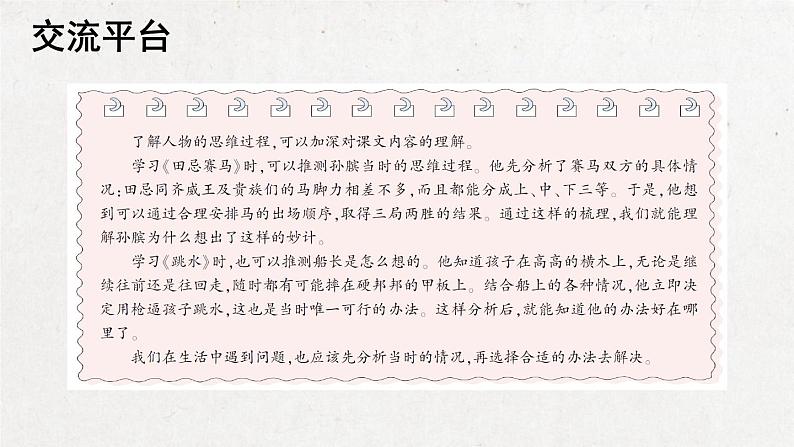 交流平台
了解人物的思维过程，可以加深对课文内容的理解。
学习《田忌赛马》时，可以推测孙膑当时的思维过程。他先分析了赛马双方的具体情
况：田忌同齐威王及贵族们的马脚力相差不多，而且都能分成上、中、下三等。于是，他想
到可以通过合理安排马的出场顺序，取得三局两胜的结果。通过这样的梳理，我们就能理
解孙膑为什么想出了这样的妙计。
学习《跳水》时，也可以推测船长是怎么想的。他知道孩子在高高的横木上，无论是继
续往前还是往回走，随时都有可能摔在硬邦邦的甲板上。结合船上的各种情况，他立即决
定用枪逼孩子跳水，这也是当时唯一可行的办法。这样分析后，就能知道他的办法好在哪
里了。
我们在生活中遇到问题，也应该先分析当时的情况，再选择合适的办法去解决。